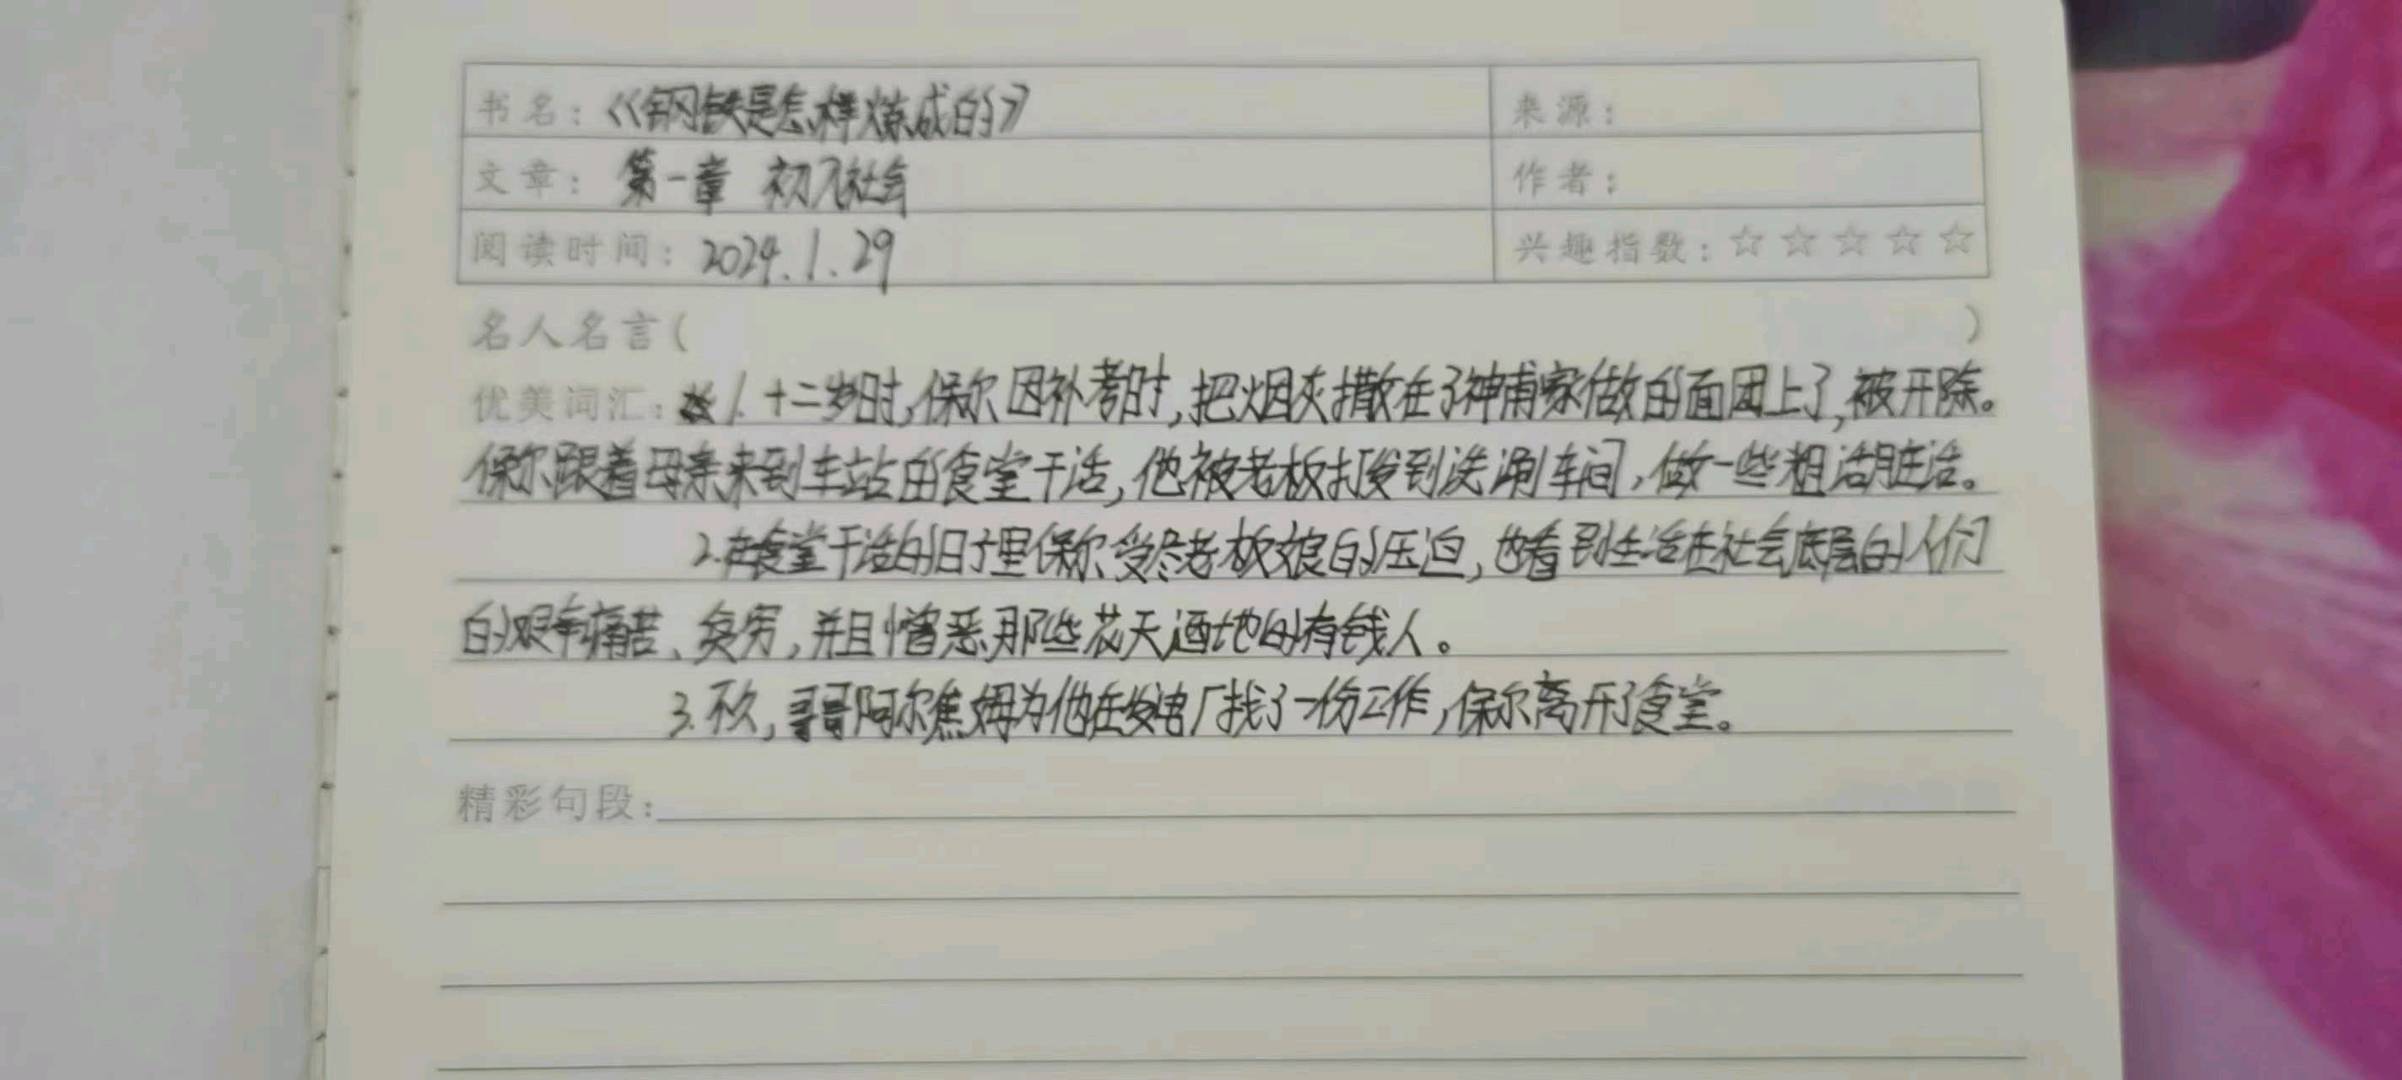 书名：《钢铁是怎样炼成的》 来源：
文章：第一章 初入社会 作者：
阅读时间：2024.1.29 兴趣指数：☆☆☆☆☆
名人名言（ ）
优美词汇：1.十二岁时,保尔因补考时,把烟灰撒在了神甫家做的面团上了,被开除。
保尔跟着母亲来到车站的食堂干活,他被老板打发到洗涮车间,做一些粗活脏活。
2.在食堂干活的日子里保尔受尽老板娘的压迫,也看到生活在社会底层的人们
的艰辛痛苦、贫穷,并且憎恶那些花天酒地的有钱人。
3.不久,哥哥阿尔焦姆为他在发电厂找了一份工作,保尔离开了食堂。
精彩句段：